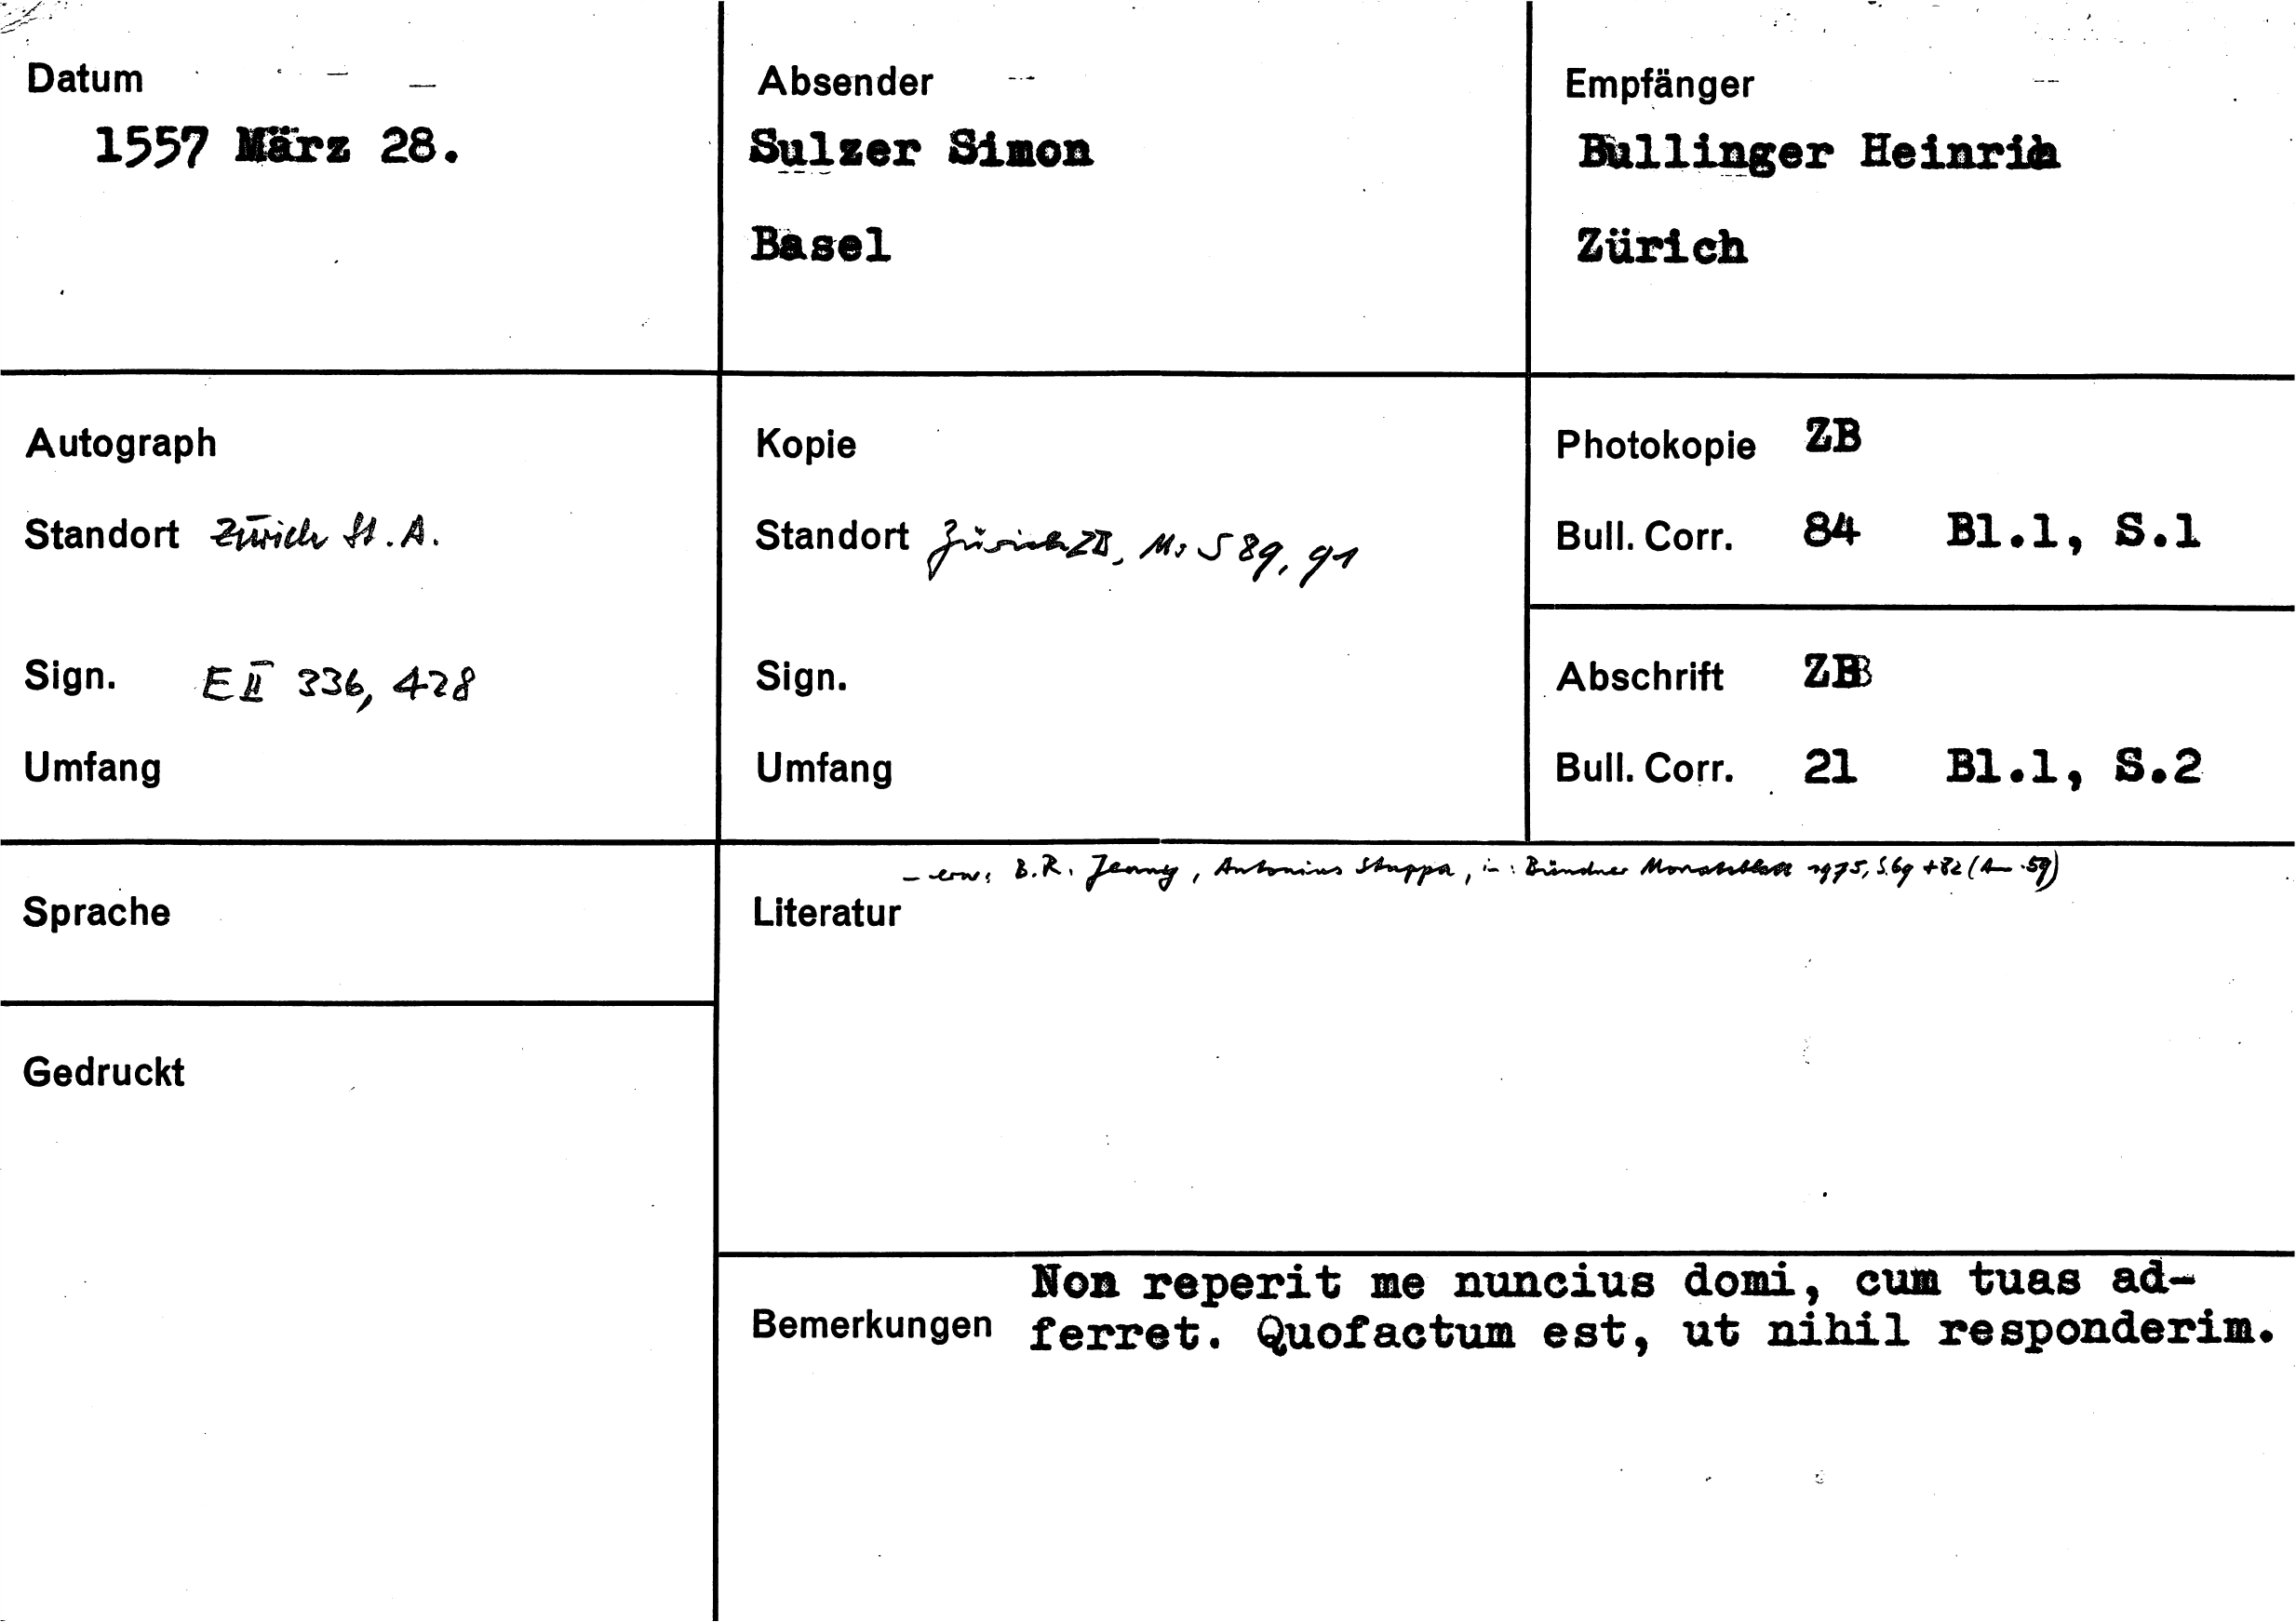 Datum
1557 März 28.
Absender
Sulzer Simon
Basel
Empfänger
Bullinger Heinrich
Zürich
Autograph
Standort Zürich St.A.
Sign. E II 336, 428
Umfang
Kopie
Standort Zürich ZB, Ms S 89, 91
Sign.
Umfang
Photokopie ZB
Bull. Corr. 84 Bl.1, S.1
Abschrift ZB
Bull. Corr. 21 Bl.1, S.2
Sprache
Gedruckt
Literatur
- erw: B.R. Jenny, Antonius Stuppa, in: Bündner Monatsblatt 1975, S.69 + 82 (Anm. 59)
Bemerkungen
Non reperit me nuncius domi, cum tuas ad-
ferret. Quofactum est, ut nihil responderim.